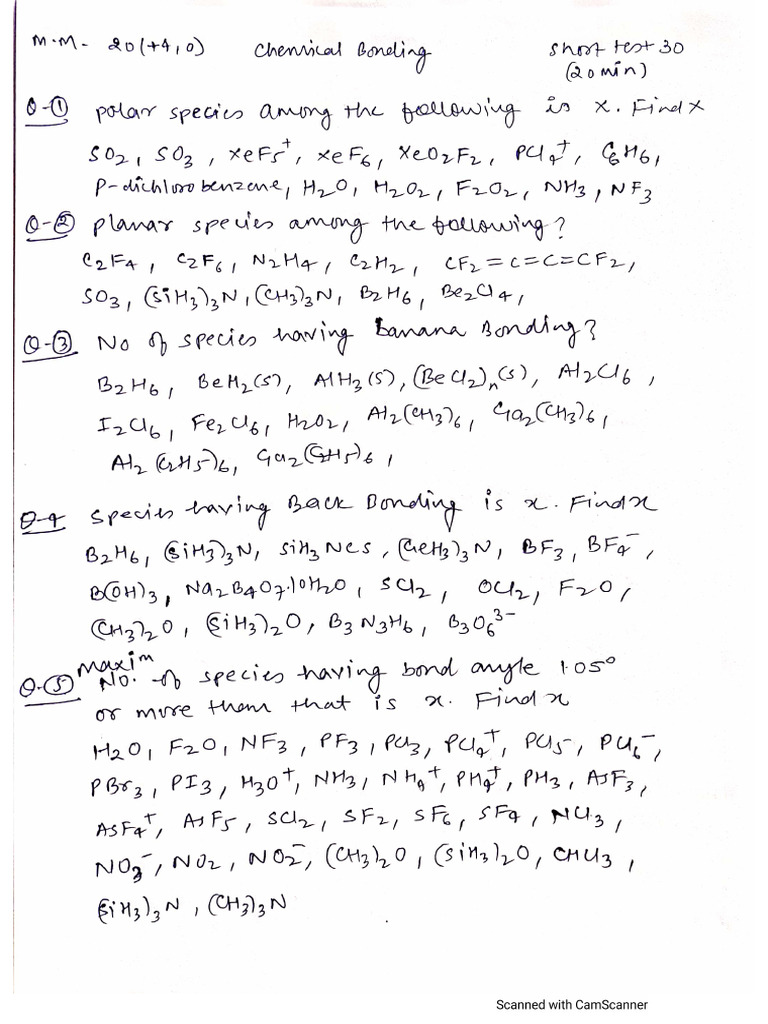 M.M- 20(+4,0) Chemical Bonding Short test 30
(20 min)
Q-① polar species among the following is x. Find x
SO2, SO3, XeF5+, XeF6, XeO2F2, PCl4+, C6H6,
P-dichlorobenzene, H2O, H2O2, F2O2, NH3, NF3
Q-② planar species among the following?
C2F4, C2F6, N2H4, C2H2, CF2=C=C=CF2,
SO3, (SiH3)3N, (CH3)3N, B2H6, Be2Cl4,
Q-③ No of species having Banana Bonding?
B2H6, BeH2(s), AlH3(s), (BeCl2)n(s), Al2Cl6,
I2Cl6, Fe2Cl6, H2O2, Al2(CH3)6, Ga2(CH3)6,
Al2(C2H5)6, Ga2(C2H5)6,
Q-4 Species having Back Bonding is x. Find x
B2H6, (SiH3)3N, SiH3NCS, (GeH3)3N, BF3, BF4-,
B(OH)3, Na2B4O7.10H2O, SCl2, OCl2, F2O,
(CH3)2O, (SiH3)2O, B3N3H6, B3O6 3-
Maxim
Q-⑤ No. of species having bond angle 105°
or more them that is x. Find x
H2O, F2O, NF3, PF3, PCl3, PCl4+, PCl5, PCl6-,
PBr3, PI3, H3O+, NH3, NH4+, PH4+, PH3, AsF3,
AsF4+, AsF5, SCl2, SF2, SF6, SF4, NCl3,
NO3-, NO2, NO2-, (CH3)2O, (SiH3)2O, CHCl3,
(SiH3)3N, (CH3)3N
Scanned with CamScanner